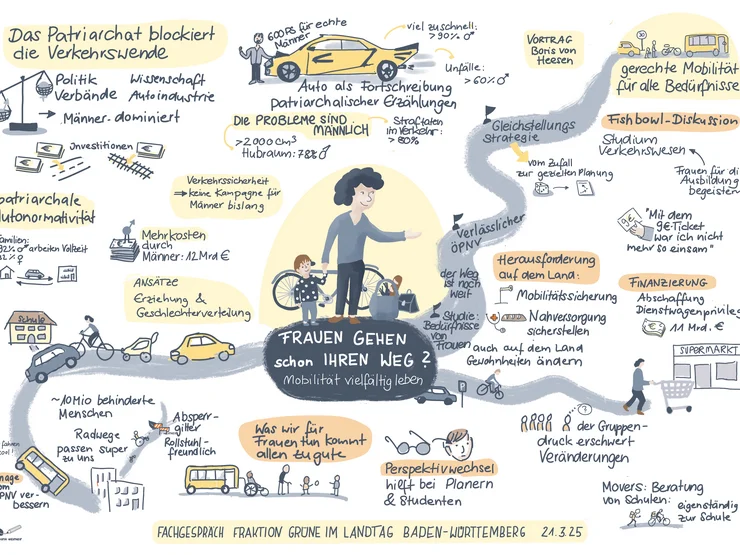 Das Patriarchat blockiert
die Verkehrswende
Politik
Verbände
Wissenschaft
Autoindustrie
→ Männer-dominiert
Investitionen
600PS für echte
Männer
viel zu schnell:
>90% ♂
Unfälle:
>60% ♂
Auto als Fortschreibung
patriarchalischer Erzählungen
DIE PROBLEME SIND
MÄNNLICH
>2000 cm³
Hubraum: 78% ♂
Straftaten
im Verkehr:
>80%
VORTRAG
Boris von
Heesen
gerechte Mobilität
für alle Bedürfnisse
30
Gleichstellungs
strategie
vom Zufall
zur gezielten Planung
Fishbowl-Diskussion
Studium
Verkehrswesen
Frauen für di
Ausbildung
begeistern
"Mit dem
9€-Ticket
war ich nicht
mehr so einsam"
patriarchale
Autonormativität
Familien:
92% ♂ arbeiten Vollzeit
Verkehrssicherheit
⇒ keine Kampagne für
Männer bislang
Mehrkosten
durch
Männer: 12 Mrd €
ANSÄTZE
Erziehung &
Geschlechterverteilung
Verlässlicher
ÖPNV
der Weg
ist noch
weit
Studie:
Bedürfnisse
von
Frauen
Herausforderung
auf dem Land:
Mobilitätssicherung
Nahversorgung
sicherstellen
auch auf dem Land
Gewohnheiten
ändern
FINANZIERUNG
Abschaffung
Dienstwagenprivileg
11 Mrd. €
SCHULE
FRAUEN GEHEN
schon IHREN WEG?
Mobilität vielfältig leben
P
SUPERMARKT
~10 Mio behinderte
Menschen
Radwege
passen super
zu uns
Absperr-
gitter
Rollstuhl-
freundlich
fahren
cool!
PNV ver-
bessern
Was wir für
Frauen tun kommt
allen zu gute
Perspektivwechsel
hilft bei Planern
& Studenten
?
der Gruppen-
druck erschwert
Veränderungen
Movers: Beratung
von Schulen:
eigenständig
zur Schule
FACHGESPRÄCH FRAKTION GRÜNE IM LANDTAG BADEN-WÜRTTEMBERG 21.3.25